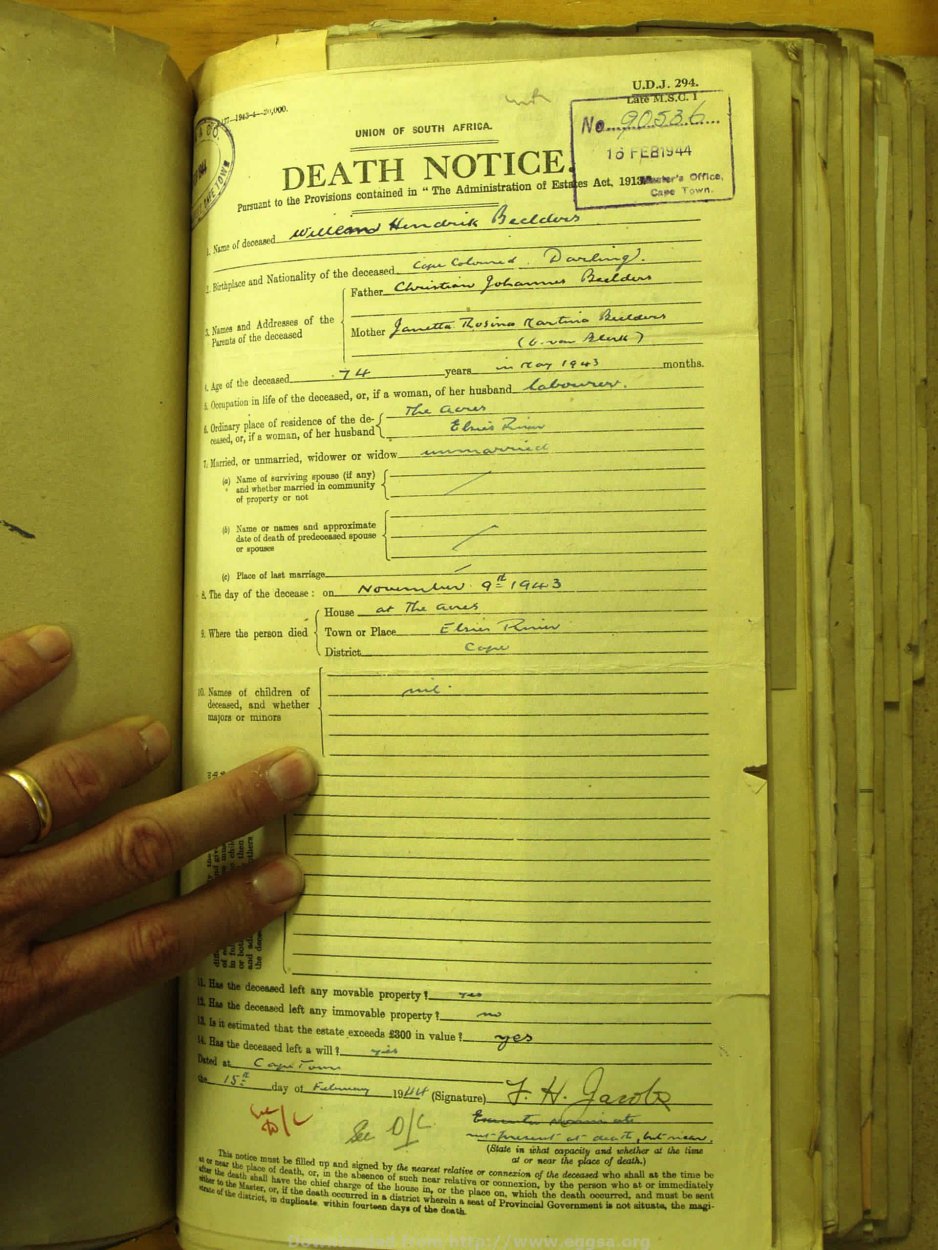 U.D.J. 294.
Late M.S.C. 1
1943-4-20,000.
No. 90536
UNION OF SOUTH AFRICA.
16 FEB 1944
DEATH NOTICE.
Master's Office,
Cape Town.
Pursuant to the Provisions contained in "The Administration of Estates Act, 1913
1. Name of deceased Willem Hendrik Beelders
2. Birthplace and Nationality of the deceased Cape Coloured. Darling).
Father Christian Johannes Beelders
3. Names and Addresses of the
Parents of the deceased
Mother Janetta Rosina Martina Beelders
(b. van Blerk)
4. Age of the deceased 74 years in May 1943 months.
5. Occupation in life of the deceased, or, if a woman, of her husband labourer.
6. Ordinary place of residence of the de-
ceased, or, if a woman, of her husband
The Acres
Elsies River
7. Married, or unmarried, widower or widow unmarried
(a) Name of surviving spouse (if any)
and whether married in community
of property or not
(b) Name or names and approximate
date of death of predeceased spouse
or spouses
(c) Place of last marriage
8. The day of the decease: on November 9th 1943
House at The Acres
9. Where the person died
Town or Place Elsies River
District Cape
10. Names of children of
deceased, and whether
majors or minors
nil.
11. Has the deceased left any movable property? yes
12. Has the deceased left any immovable property? no
13. Is it estimated that the estate exceeds £300 in value? yes
14. Has the deceased left a will? yes
Dated at Cape Town
the 15th day of February 1944 (Signature) F. H. Jacobs
Executor Nominate
See O/C
not present at death, but near.
(State in what capacity and whether at the time
at or near the place of death.)
This notice must be filled up and signed by the nearest relative or connexion of the deceased who shall at the time be
at or near the place of death, or, in the absence of such near relative or connexion, by the person who at or immediately
after the death shall have the chief charge of the house in, or the place on, which the death occurred, and must be sent
either to the Master, or, if the death occurred in a district wherein a seat of Provincial Government is not situate, the magi-
strate of the district, in duplicate, within fourteen days of the death.
Downloaded from http://www.eggsa.org